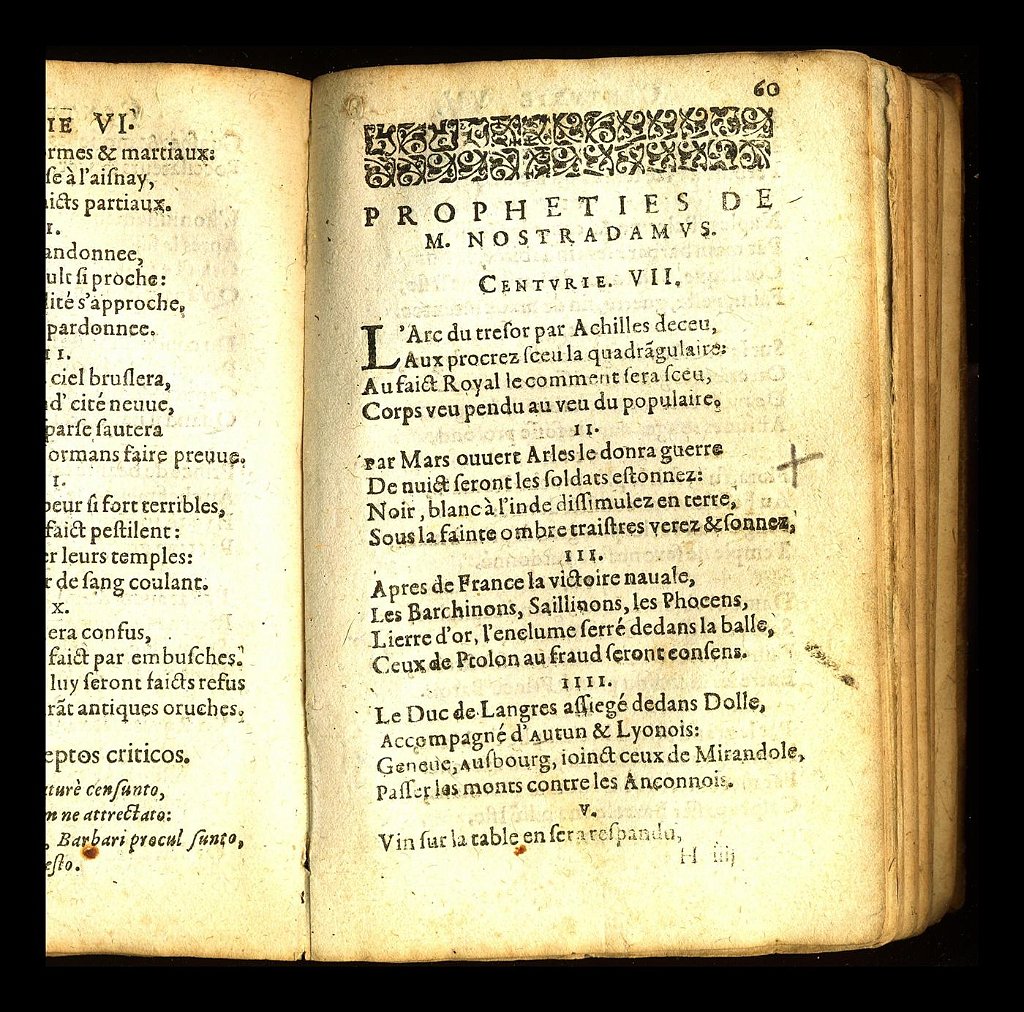 IE VI.
rmes & martiaux:
ſe à l'aiſnay,
icts partiaux.
I.
andonnee,
ult ſi proche:
lité s'approche,
pardonnee.
II.
ciel bruſlera,
d' cité neuue,
parſe ſautera
ormans faire preuue.
I.
peur ſi fort terribles,
faict peſtilent:
er leurs temples:
r de ſang coulant.
X.
era confus,
faict par embuſches.
luy ſeront faicts refus
rãt antiques oruches.
eptos criticos.
turè cenſunto,
n ne attrectato:
, Barbari procul ſunto,
eſto.
60
PROPHETIES DE
M. NOSTRADAMVS.
CENTVRIE. VII.
L'Arc du treſor par Achilles deceu,
Aux procrez ſceu la quadrãgulaire:
Au faict Royal le comment ſera ſceu,
Corps veu pendu au veu du populaire.
II.
Par Mars ouuert Arles le donra guerre
De nuict ſeront les ſoldats eſtonnez:
Noir, blanc à l'inde diſſimulez en terre,
Sous la fainte ombre traiſtres verez & ſonnez,
III.
Apres de France la victoire nauale,
Les Barchinons, Saillinons, les Phocens,
Lierre d'or, l'enclume ſerré dedans la balle,
Ceux de Ptolon au fraud ſeront conſens.
IIII.
Le Duc de Langres aſſiegé dedans Dolle,
Accompagné d'Autun & Lyonois:
Geneue, Auſbourg, ioinct ceux de Mirandole,
Paſſer les monts contre les Anconnois.
V.
Vin ſur la table en ſera reſpandu,
H iiij